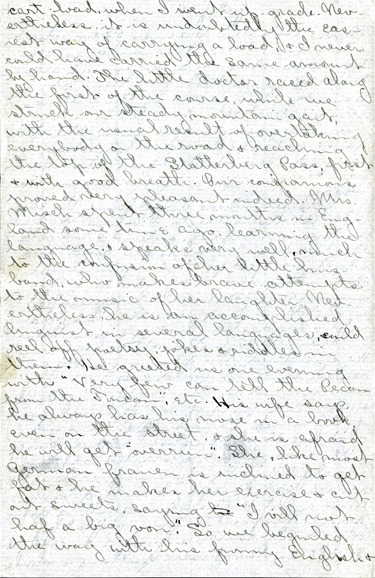 cart load, when I went up grade. Nev-
ertheless, it is undoubtedly the eas-
iest way of carrying a load, & I never
could have carried the same amount
by hand. The little doctor raced along
the first of the course, while we
struck our steady mountain gait,
with the usual result of overtaking
everybody on the road & reaching
the top of the Platterberg Pass, first
& with good breath. Our companions
proved very pleasant indeed. Mrs.
Misch spent three months in Eng-
land some time ago, learning the
language, & speaks very well, much
to the confusion of her little hus-
band, who makes brave attempts
to the music of her laughter. Nev-
ertheless he is an accomplished
linguist in several languages, could
reel off poetry, jokes & riddles in
them. He greeted us one evening
with "Very few can tell the Pecan
from the Toucan", etc. His wife says
he always has his nose in a book,
even on the street, & she is afraid
he will get "overrun". She, like most
German frauen is inclined to get
fat & he makes her exercise & cut
out sweets, saying "I vill not
half a big von". So we beguiled
the way with his funny English &